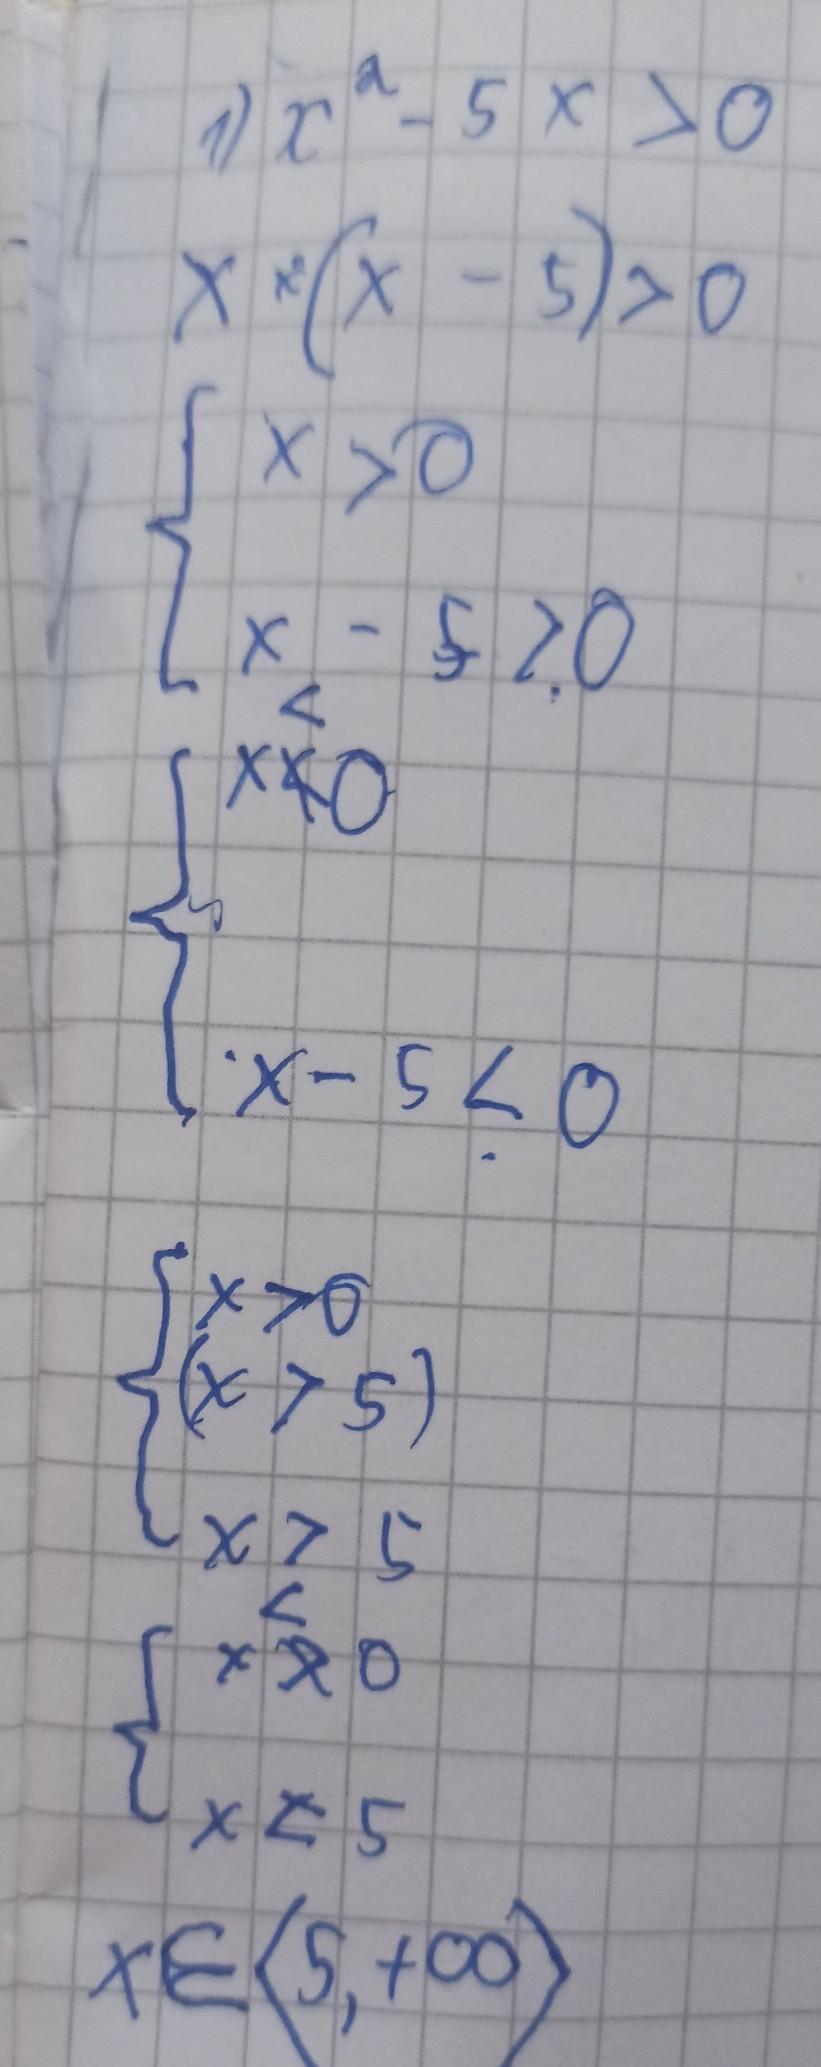 1) x² - 5 x > 0
x × (x - 5) > 0
{ x > 0
x - 5 > 0
<
{ x < 0
x - 5 < 0
{ x > 0
(x > 5)
x > 5
<
{ x > 0
x < 5
x ∈ ⟨5, +∞⟩